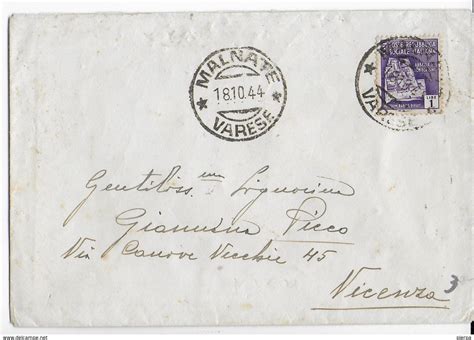 MALNATE
18.10.44
VARESE
POSTE REPUBBLICA
SOCIALE ITALIANA
LIRE
1
VARESE
Gentiliss.ma Signorina
Giannina Picco
Via Canove Vecchie 45
Vicenza
3